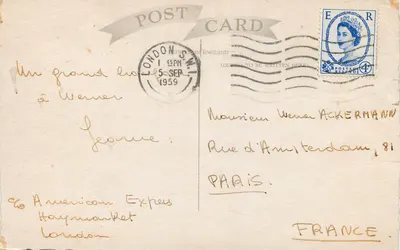 POST CARD
E R
LONDON S.W.1
1 15PM
5 SEP
1959
Un grand
à Werner
Jeanne.
c/o American Express
Haymarket
London
Monsieur Werner ACKERMANN
Rue d'Amsterdam, 81
PARIS.
FRANCE.